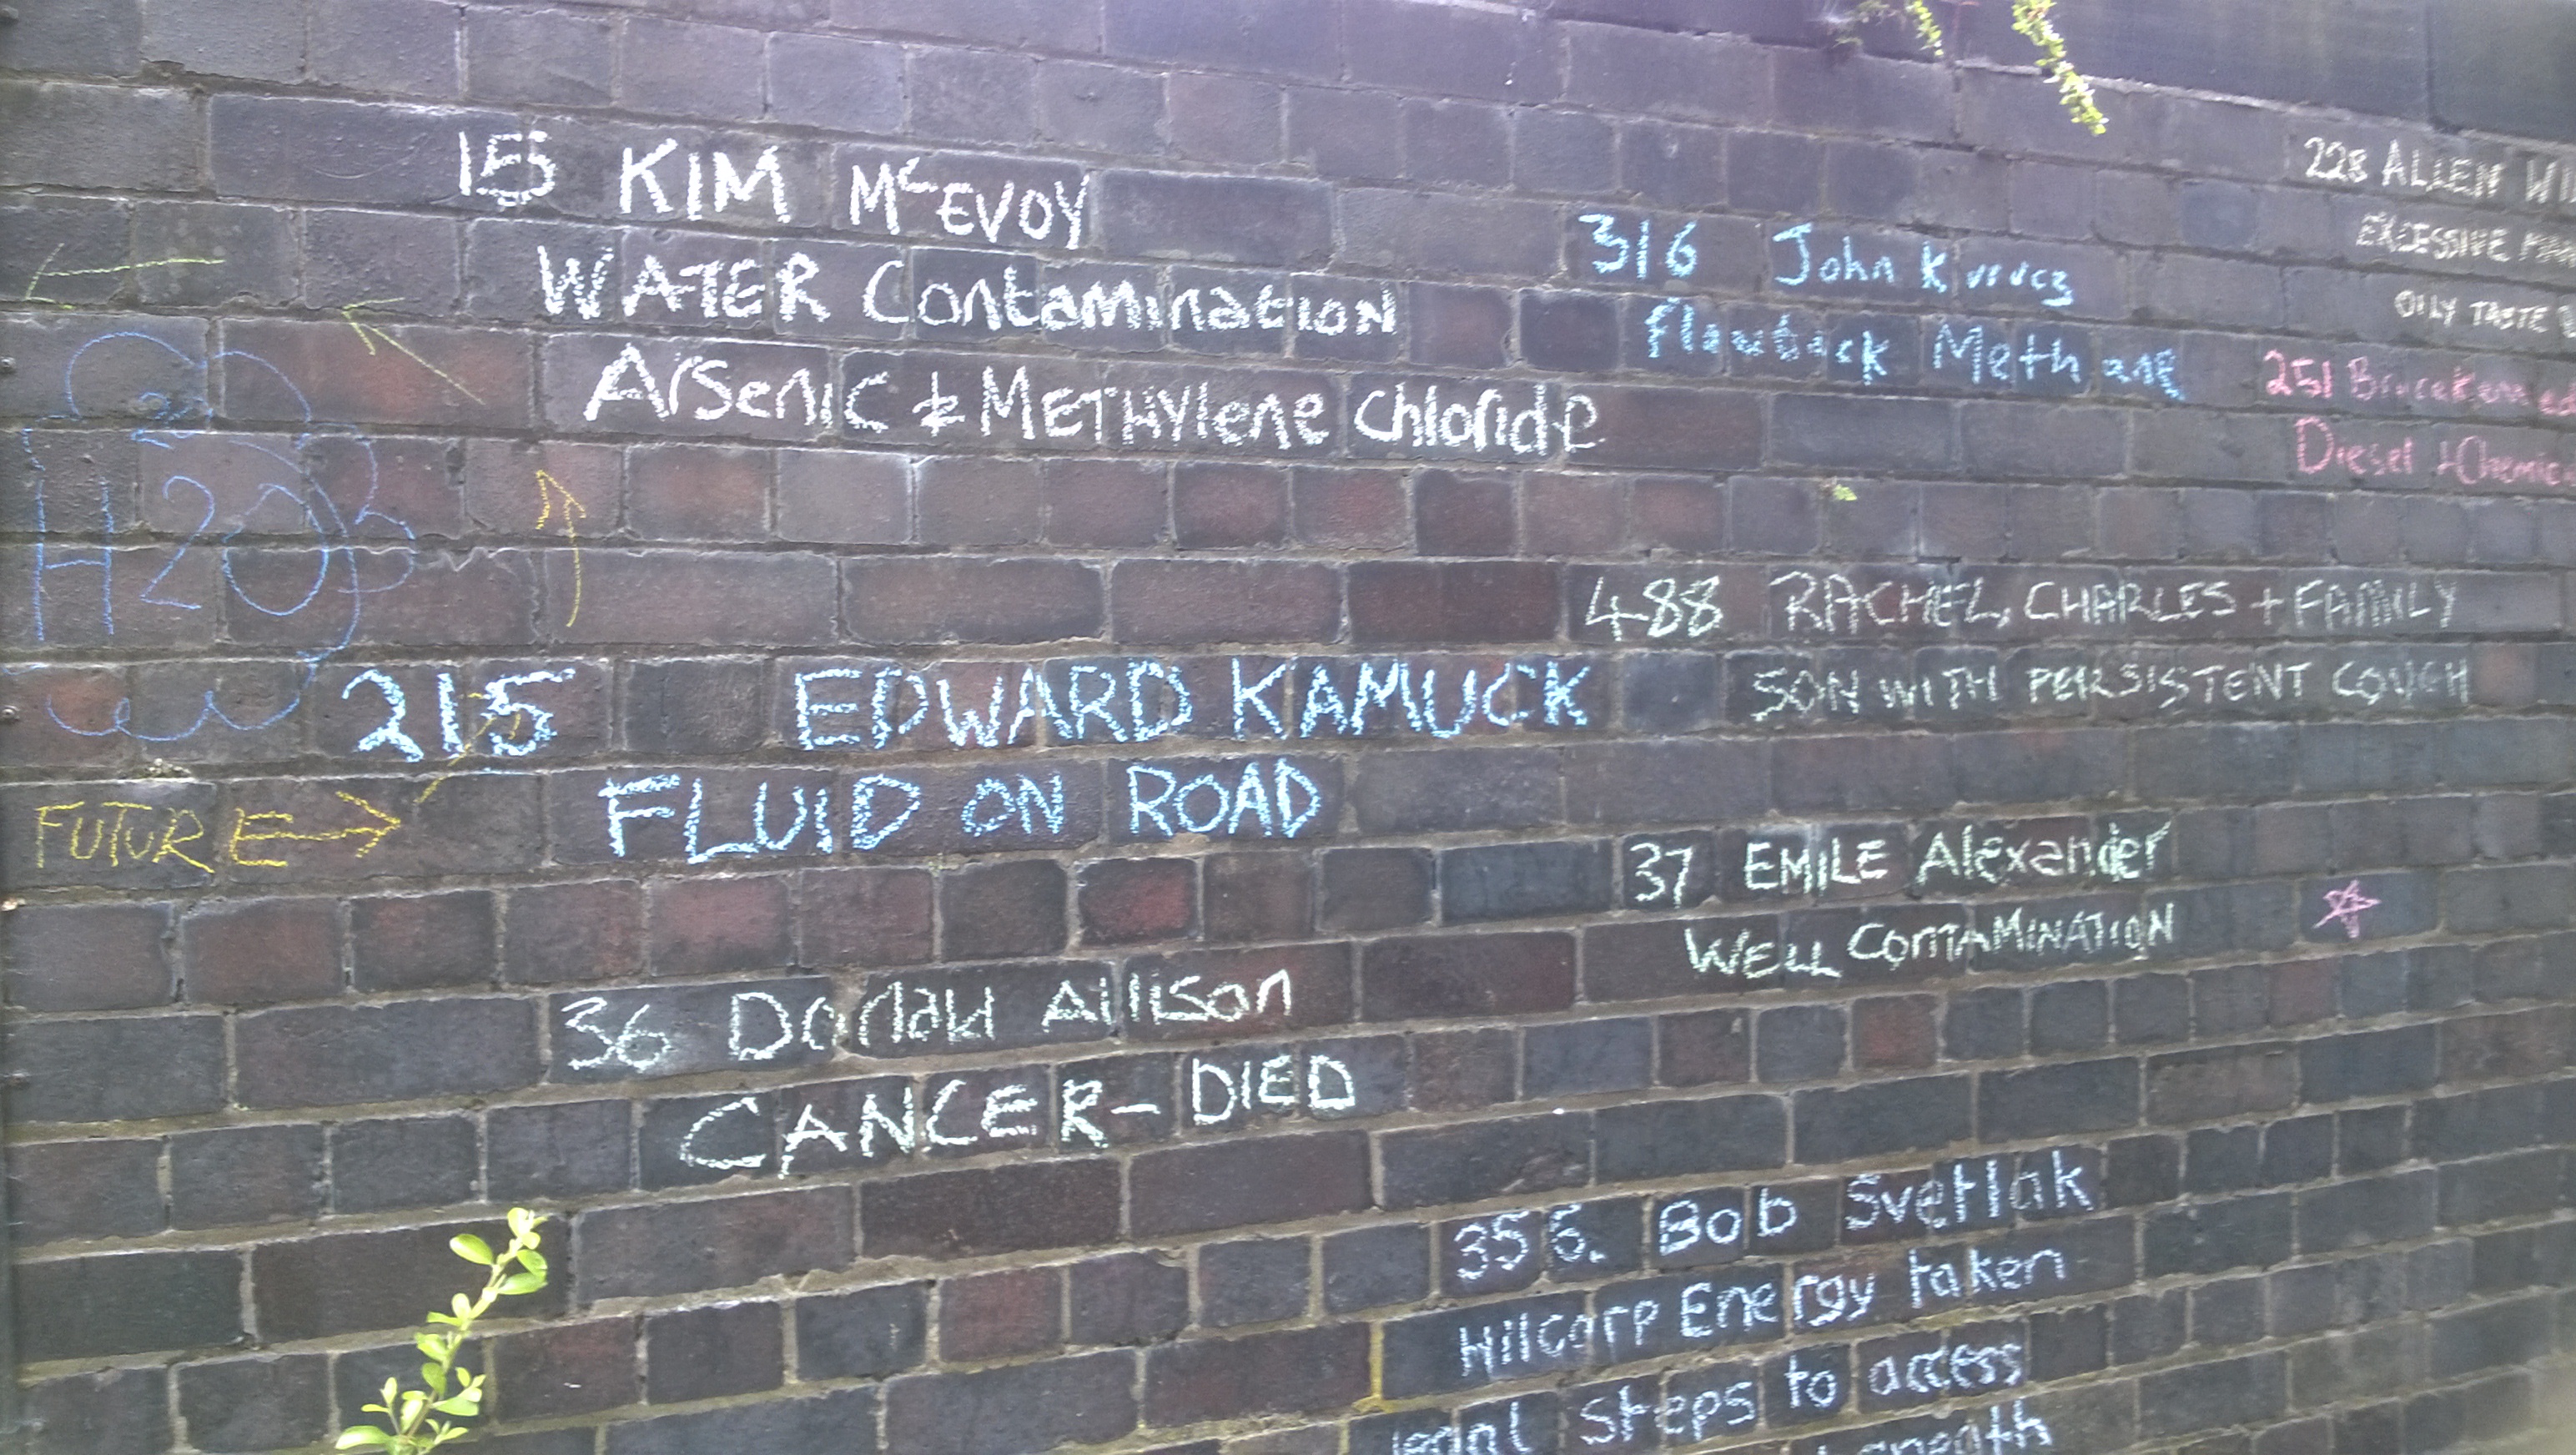 15 KIM McEVOY
WATER Contamination
Arsenic & METHYlene Chloride
H2O
215 EDWARD KAMUCK
FLUID ON ROAD
FUTURE
36 Donald Allison
CANCER - DIED
316 John
flowback Methane
228 ALLEN
EXCESSIVE
OILY TASTE
251
Diesel +
488 RACHEL, CHARLES + FAMILY
SON WITH PERSISTENT COUGH
37 EMILE Alexander
WELL CONTAMINATION
356. Bob Svetlak
Hilcorp Energy taken
legal Steps to access